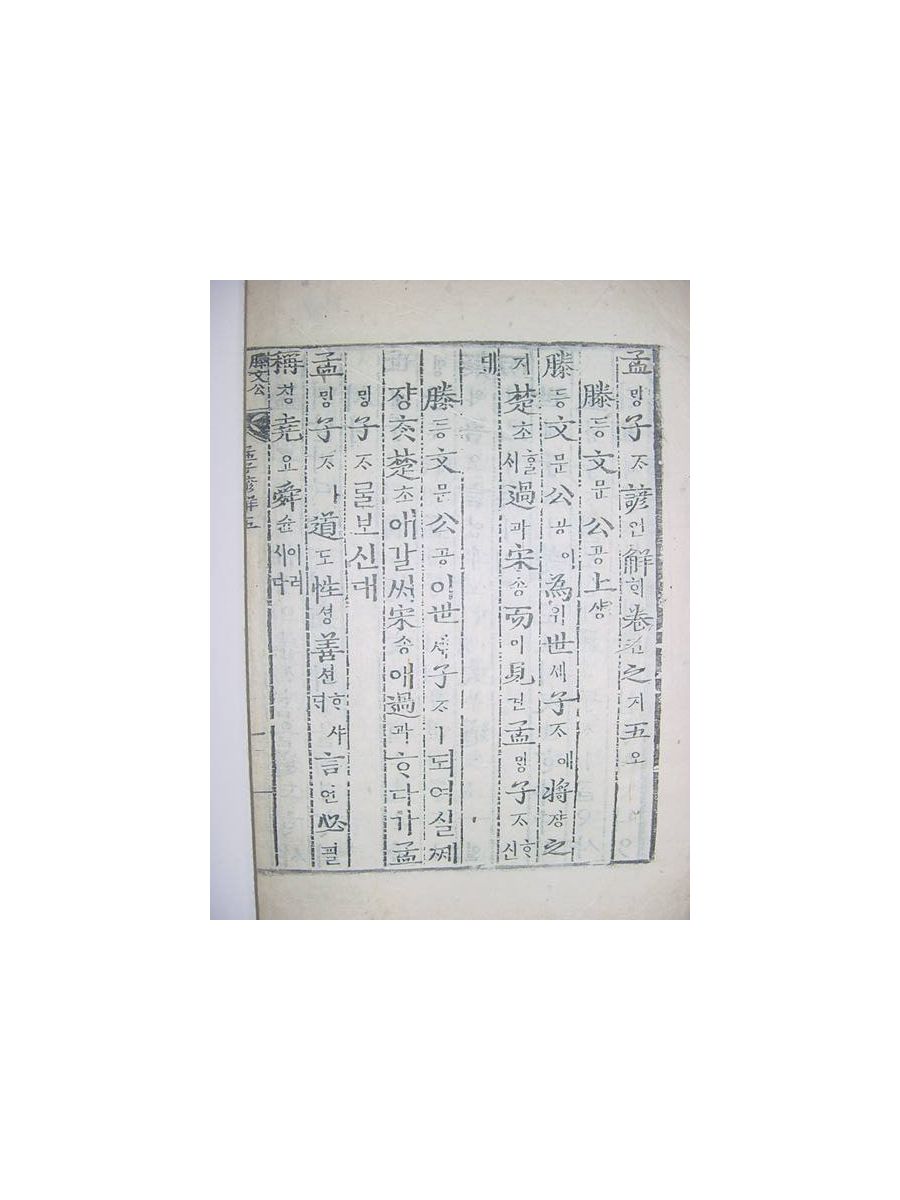 孟ᄆᆡᆼ子ᄌᆞ諺언解ᄒᆡ卷권之지五오
滕등文문公공上샹
滕등文문公공이爲위世셰子ᄌᆞ애將쟝之
지楚초ᄒᆞᆯ시過과宋송而이見견孟ᄆᆡᆼ子ᄌᆞᄒᆞ신
대
滕등文문公공이世셰子ᄌᆞㅣ되여실ᄶᅦ
쟝ᄎᆞᆺ楚초애갈ᄊᆡ宋송애過과ᄒᆞ다가孟
ᄆᆡᆼ子ᄌᆞᄅᆞᆯ보신대
孟ᄆᆡᆼ子ᄌᆞㅣ道도性셩善션ᄒᆞ샤ᄃᆡ言언必필
稱칭堯요舜슌이러시다
滕文公 孟子諺解五 一